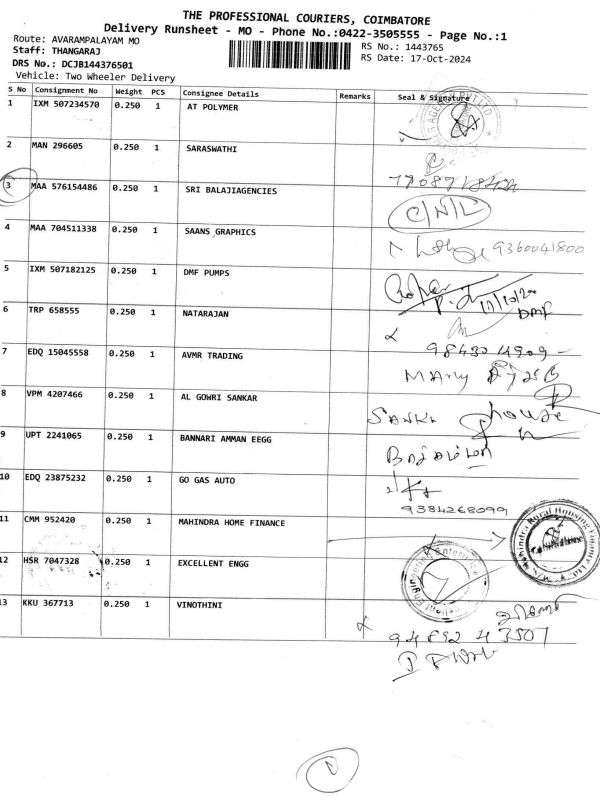 THE PROFESSIONAL COURIERS, COIMBATORE
Delivery Runsheet - MO - Phone No.:0422-3505555 - Page No.:1
Route: AVARAMPALAYAM MO
RS No.: 1443765
Staff: THANGARAJ
RS Date: 17-Oct-2024
DRS No.: DCJB144376501
Vehicle: Two Wheeler Delivery
S No Consignment No Weight PCS Consignee Details Remarks Seal & Signature
1 IXM 507234570 0.250 1 AT POLYMER
2 MAN 296605 0.250 1 SARASWATHI
3 MAA 576154486 0.250 1 SRI BALAJIAGENCIES
C/N/L
4 MAA 704511338 0.250 1 SAANS GRAPHICS
9360041800
5 IXM 507182125 0.250 1 DMF PUMPS
DMF
6 TRP 658555 0.250 1 NATARAJAN
7 EDQ 15045558 0.250 1 AVMR TRADING
8 VPM 4207466 0.250 1 AL GOWRI SANKAR
9 UPT 2241065 0.250 1 BANNARI AMMAN EEGG
10 EDQ 23875232 0.250 1 GO GAS AUTO
9384268099
11 CMM 952420 0.250 1 MAHINDRA HOME FINANCE
Mahindra Rural Housing Finance Ltd.
12 HSR 7047328 0.250 1 EXCELLENT ENGG
13 KKU 367713 0.250 1 VINOTHINI